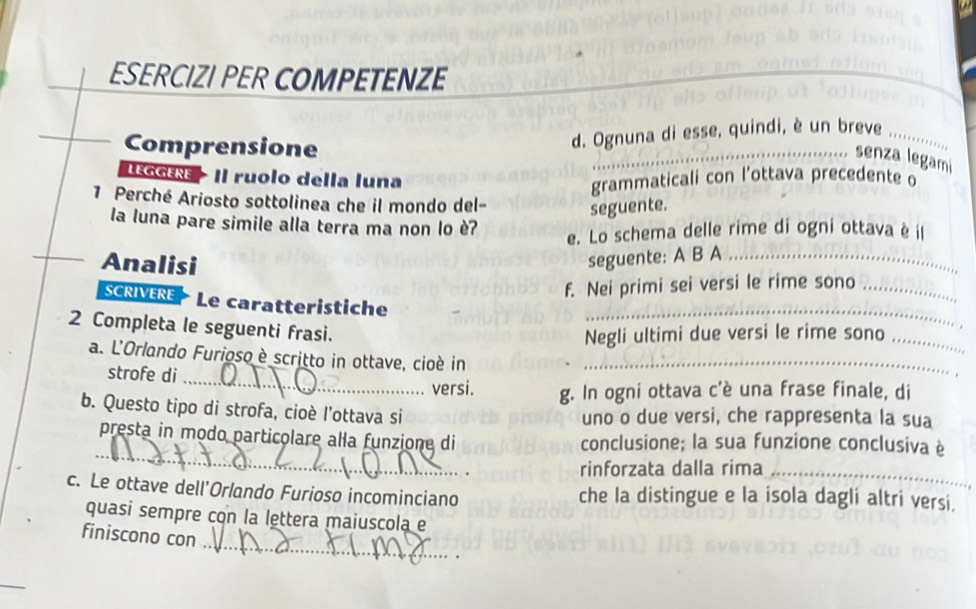 ESERCIZI PER COMPETENZE
Comprensione
LEGGERE Il ruolo della luna
1 Perché Ariosto sottolinea che il mondo del-
la luna pare simile alla terra ma non lo è?
Analisi
SCRIVERE Le caratteristiche
2 Completa le seguenti frasi.
a. L'Orlando Furioso è scritto in ottave, cioè in
strofe di OTTO versi.
b. Questo tipo di strofa, cioè l'ottava si
presta in modo particolare alla funzione di
narrazione.
c. Le ottave dell'Orlando Furioso incominciano
quasi sempre con la lettera maiuscola e
finiscono con una rima.
d. Ognuna di esse, quindi, è un breve
senza legami
grammaticali con l'ottava precedente o
seguente.
e. Lo schema delle rime di ogni ottava è il
seguente: A B A
f. Nei primi sei versi le rime sono
.
Negli ultimi due versi le rime sono
.
g. In ogni ottava c'è una frase finale, di
uno o due versi, che rappresenta la sua
conclusione; la sua funzione conclusiva è
rinforzata dalla rima
che la distingue e la isola dagli altri versi.